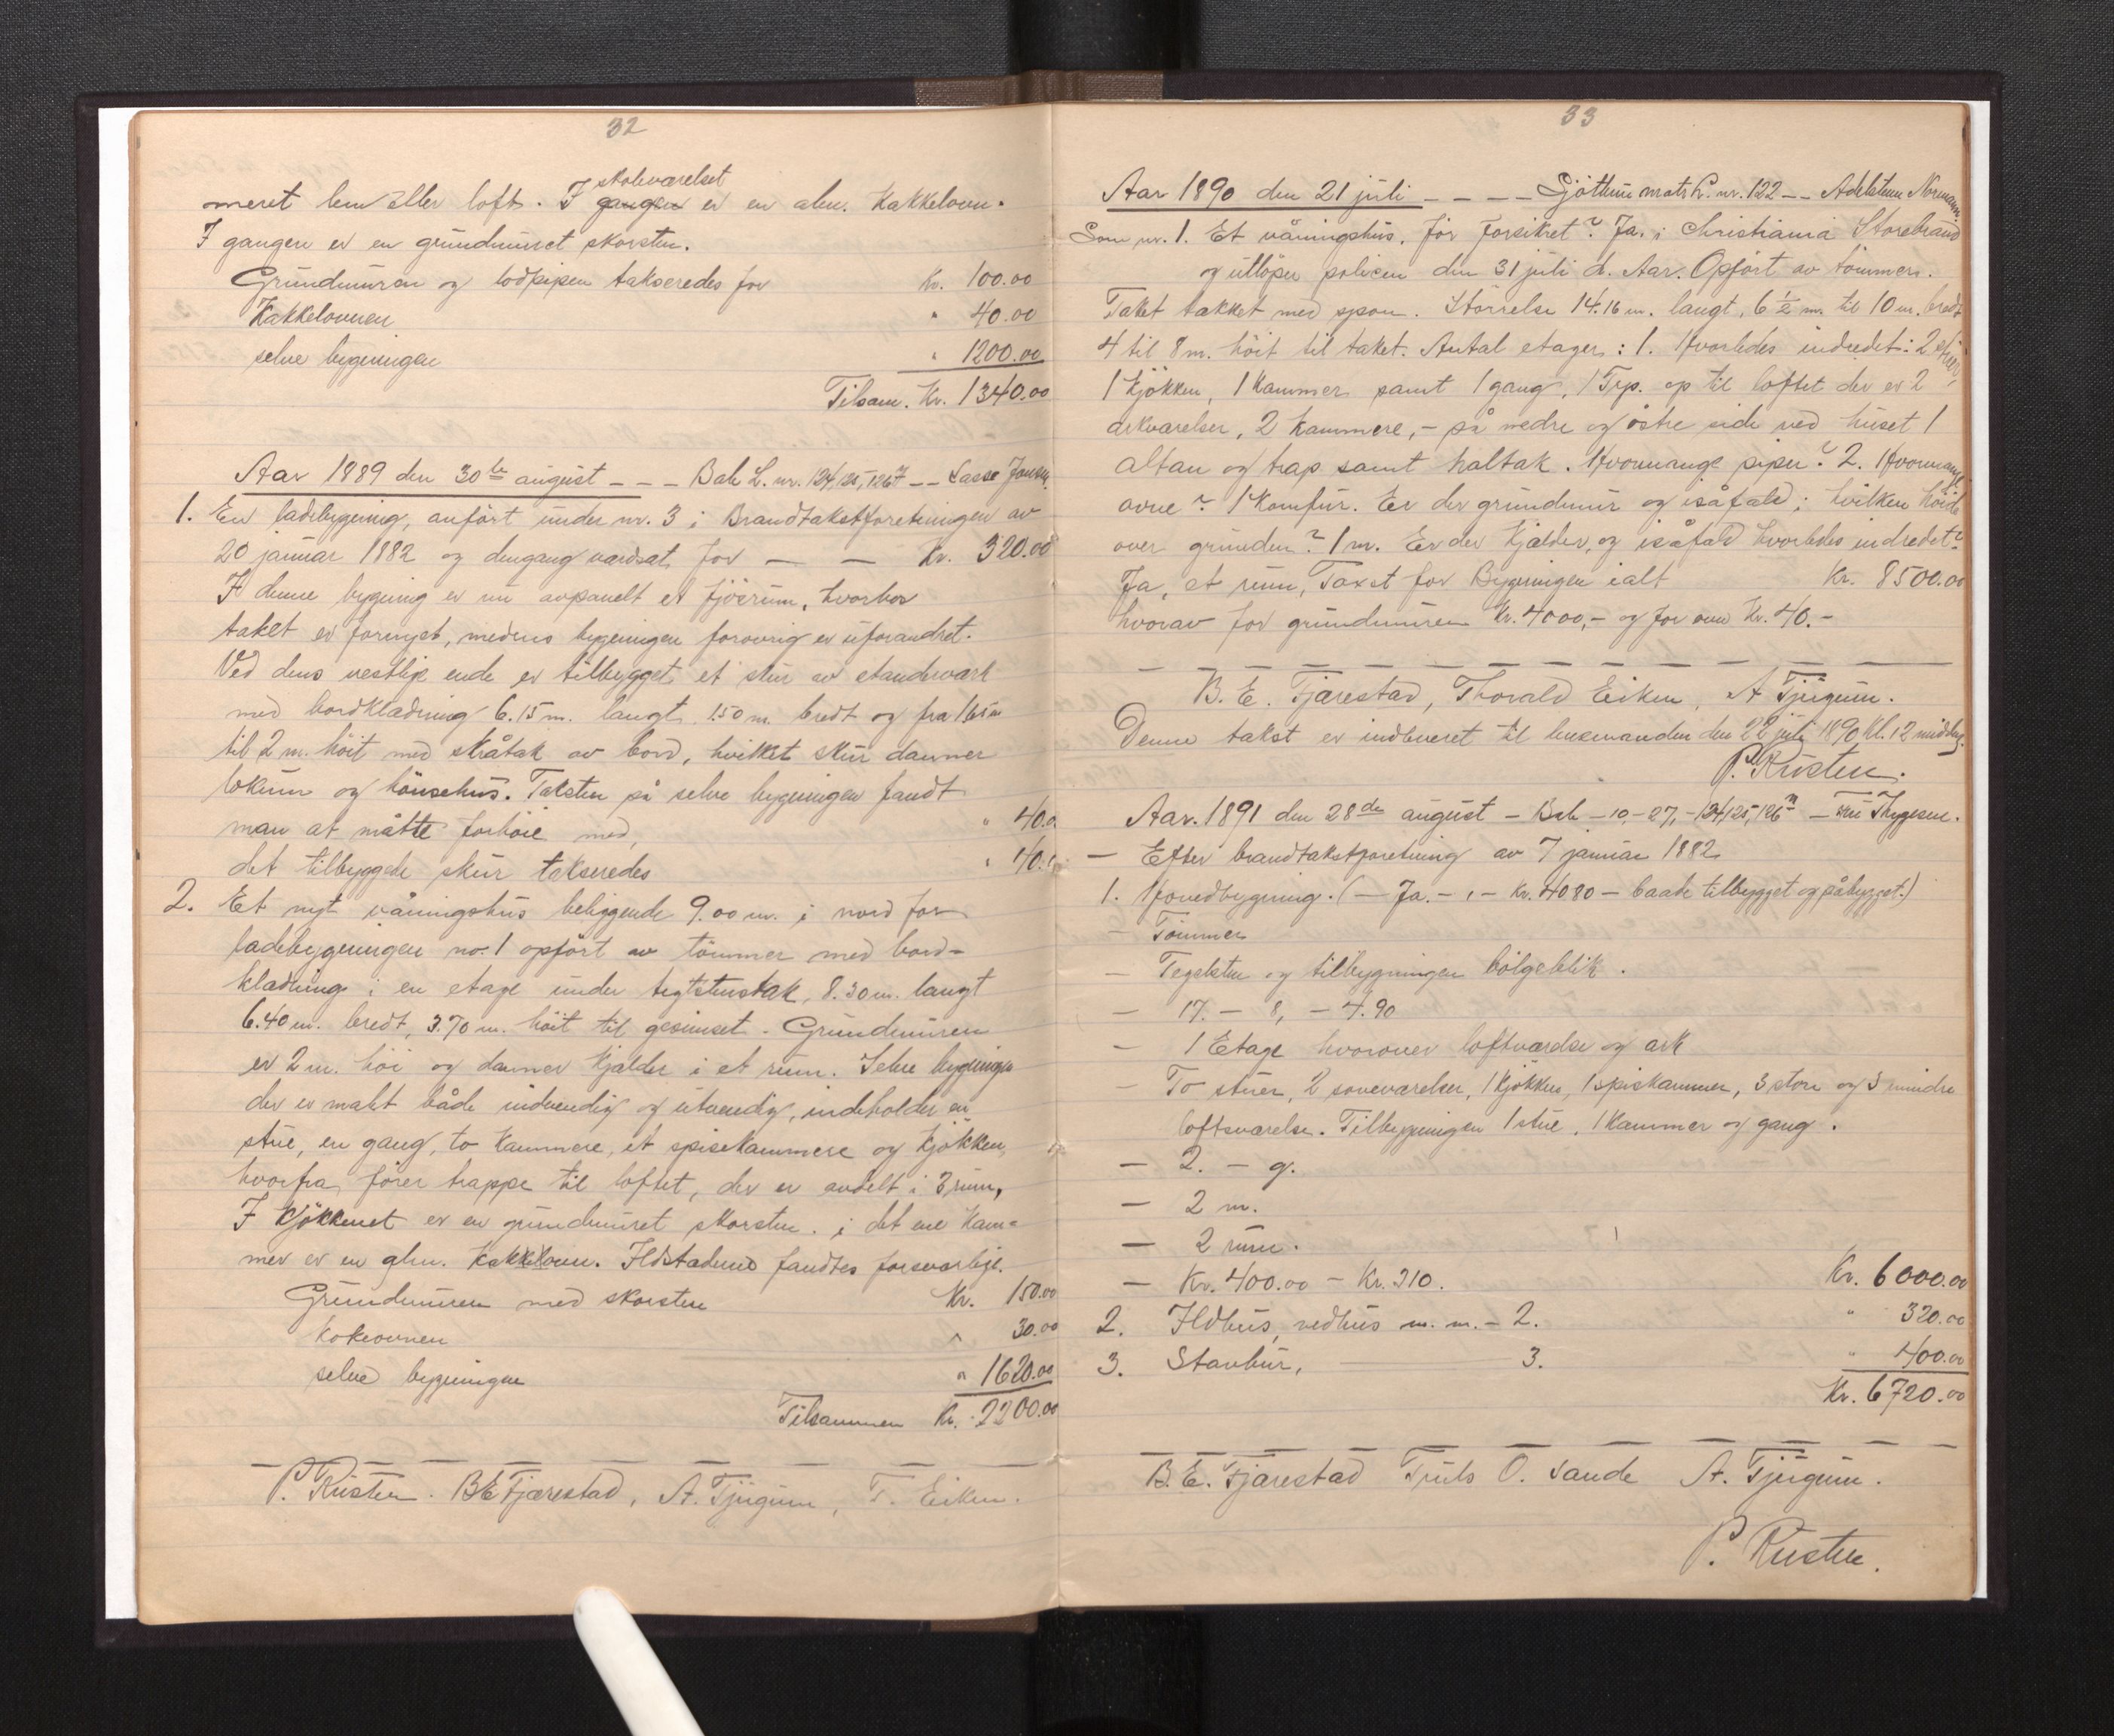 32
meret lem eller loft. I gangen skoleværelset er en alm. Kakkelovn.
I gangen er en grundmuret skorsten.
Grundmuren og lodpipen takseredes for Kr. 100.00
Kakkelovnen " 40.00
selve bygningen " 1200.00
Tilsam. Kr. 1340.00
Aar 1889 den 30te august - - - Bale L. nr. 124, 125, 126 - - Lasse Jonsen
1. En ladebygning, anført under nr. 3 i Brandtakstforretningen av
20 januar 1882 og dengang værdsat for — — Kr. 320.00
I denne bygning er nu avpanelt et fjösrum, hvorhos
taket er fornyet, medens bygningen forøvrig er uforandret.
Ved dens vestlige ende er tilbygget et skur av standerværk
med bordklædning 6.15 m. langt 1.50 m. bredt og fra 1.65 m
til 2 m. höit med skråtak av bord, hvilket skur danner
lokum og hönsehus. Taksten på selve bygningen fandt
man at måtte forhöie med, " 40.0
det tilbyggede skur takseredes " 40.
2. Et nyt våningshus beliggende 9.00 m. i nord for
ladebygningen no. 1 opfört av tömmer med bord-
klædning i en etage under teglstenstak, 8.30 m. langt
6.40 m. bredt, 3.70 m. höit til gesimset. Grundmuren
er 2 m. höi og danner kjælder i et rum. Selve bygningen
der er malt både indvendig og utvendig, indeholder en
stue, en gang, to kammere, et spisekammere og kjökken,
hvorfra förer trappe til loftet, der er avdelt i 3 rum,
I kjökkenet er en grundmuret skorsten. i det ene kam-
mer er en alm. kakkelovn. Ildstederne fandtes forsvarlige.
Grundmuren med skorsten Kr. 150.00
Kokeovnen " 30.00
selve bygningen " 1620.00
Tilsammen Kr. 2200.00
P. Risten. B E Tjærestad, A. Tjugum, T. Eiken.
33
Aar 1890 den 21 juli - - - - matr L. nr. 122 - - Adelsteen Normann
Som nr. 1. Et våningshus. för forsikret? Ja. i Christiania Storebrand
og utløper policen den 31 juli d. Aar. Opfört av tömmer.
Taket tækket med spon. Störrelse 14.16 m. langt, 6 ½ m. til 10 m. bredt
4 til 8 m. höit til taket. Antal etager: 1. Hvorledes indredet: 2 stuer,
1 kjökken, 1 kammer samt 1 gang, 1 Trp. op til loftet der er 2
arkværelser, 2 kammere, - på nedre og östre side ved huset 1
altan og trap samt halvtak. Hvormange piper? 2. Hvormange
ovne? 1 komfur. Er der grundmur og isåfald; hvilken höide
over grunden? 1 m. Er der kjælder, og isåfald hvorledes indredet?
Ja, et rum, Taxst for Bygningen ialt Kr. 8500.00
hvorav for grundmuren Kr. 4000,- og for ovn Kr. 40.-
B. E. Tjærestad, Thorald Eiken, A Tjugum.
Denne takst er indleveret til lensmanden den 22 juli 1890 Kl. 12 middag.
P. Risten.
Aar. 1891 den 28de august - Bale - 10, - 27, - 124, 125, 126 - Fru Thygesen.
— Efter brandtakstforretning av 7 januar 1882
1. Hovedbygning. (— Ja. - , - Kr. 4080 - baade tilbygget og påbygget.)
— Tömmer
— Tegelsten og tilbygningen bölgeblik.
— 17. - 8, - 4.90
— 1 Etage hvorover loftværelse og ark
— To stuer, 2 soveværelser, 1 kjökken, 1 spiskammer, 3 store og 3 mindre
loftsværelse. Tilbygningen 1 stue, 1 kammer og gang.
— 2. - g.
— 2 m.
— 2 rum.
— Kr. 400.00 - Kr. 210. Kr. 6000.00
2. Ildhus, vedhus m. m. - 2. " 320.00
3. Stavbur, — 3. " 400.00
Kr. 6720.00
B. E. Tjærestad Truls O. Sande A. Tjugum.
P. Risten.